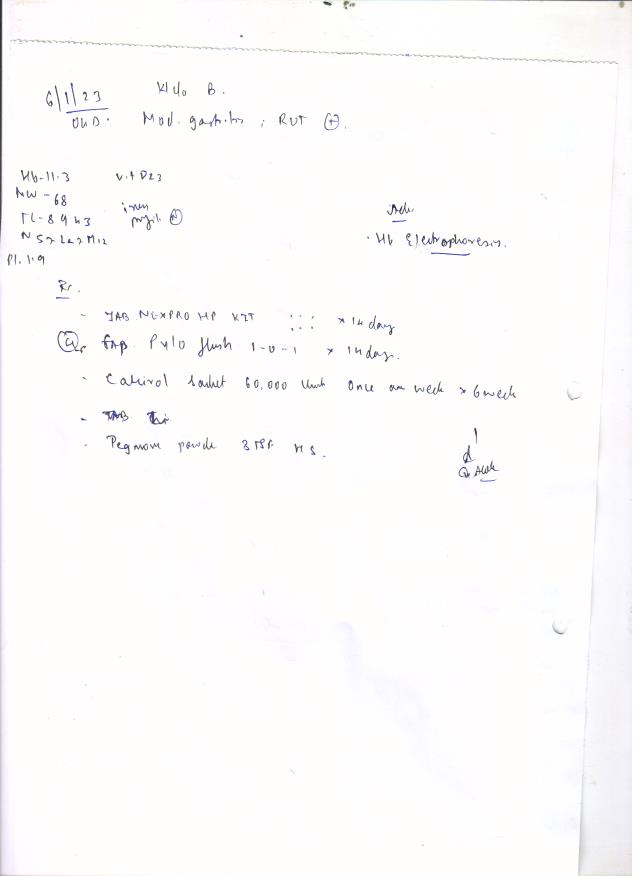 6/1/23 K/c/o B.
OGD: Mod. gastritis ; RUT (+).
Hb-11.3 Vit D23
MCV-68
iron
TL-8943 profile (N)
N57L27M12
Pl. 1.9
Adv
. Hb Electrophoresis.
Rx.
- TAB NEXPRO HP KIT × 14 day
Or Cap. Pylo flush 1-0-1 × 14 day.
- Calcirol Sachet 60,000 Unit Once a week × 6 week
- TAB
- Pegmove powder 3 TSF HS.